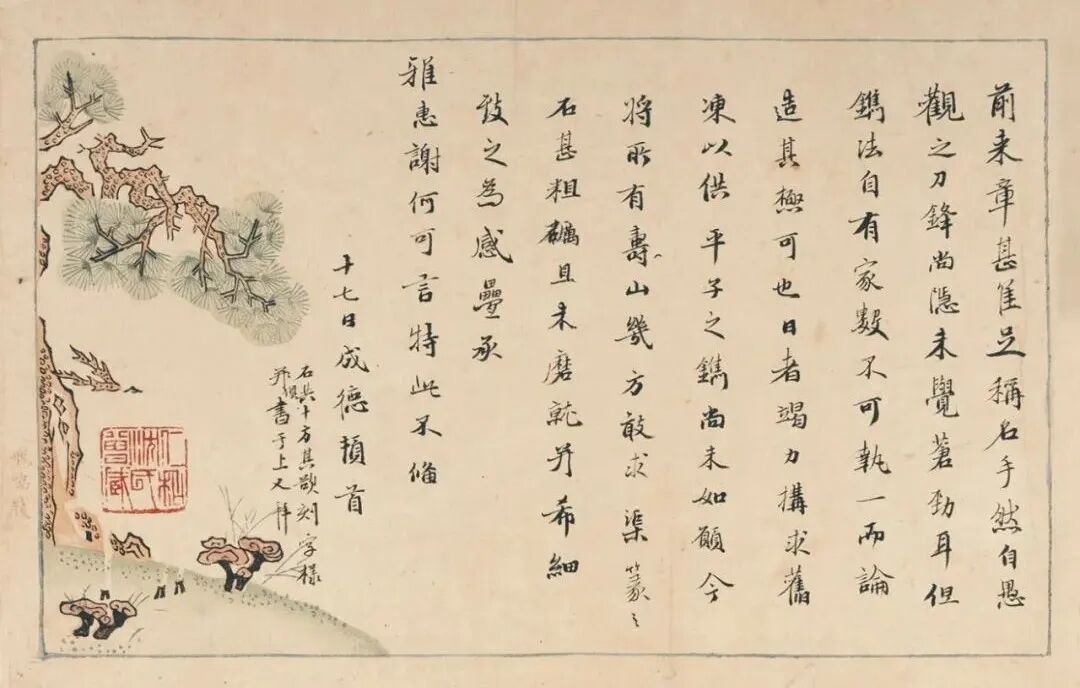 前来章甚佳足称名手然自愚
觀之刀鋒尚隱未覺蒼勁耳但
鐫法自有家數不可執一而論
造其極可也日者竭力搆求舊
凍以供平子之鐫尚未如願今
將所有壽山幾方敢求渠篆之
石甚粗礪且未磨就并希細
致之為感疊承
雅惠謝何可言特此不備
十七日成德頓首
石共十方其欲刻字樣
并書于上又拜
仁和
沈氏
曾藏